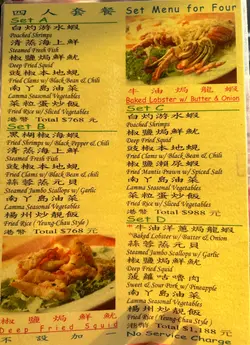 四人套餐 Set Menu for Four
Set A
白灼游水蝦
Poached Shrimps
清蒸海上鮮
Steamed Fresh Fish
椒鹽焗鮮魷
Deep Fried Squid
豉椒本地蜆
Fried Clams w/ Black Bean & Chili
南丫島油菜
Lamma Seasonal Vegetables
菜粒蛋炒飯
Fried Rice w/ Sliced Vegetables
港幣 Total $768 元
Set B
黑椒椒海蝦
Fried Shrimps w/ Black Pepper & Chili
清蒸海上鮮
Steamed Fresh Fish
豉椒本地蜆
Fried Clams w/ Black Bean & Chili
蒜蓉蒸元貝
Steamed Jumbo Scallops w/ Garlic
南丫島油菜
Lamma Seasonal Vegetables
楊州炒靚飯
Fried Rice (Yeung Chau Style)
港幣 Total $768 元
椒鹽焗鮮魷
Deep Fried Squid
不設加
牛油焗龍蝦
Baked Lobster w/ Butter & Onion
Set C
白灼游水蝦
Poached Shrimps
清蒸海上鮮
Steamed Fresh Fish
豉椒本地蜆
Fried Clams w/ Black Bean & Chili
椒鹽瀨尿蝦
Fried Mantis Prawn w/ Spiced Salt
南丫島油菜
Lamma Seasonal Vegetables
菜粒蛋炒飯
Fried Rice w/ Sliced Vegetables
港幣 Total $988 元
Set D
牛油洋蔥焗龍蝦
Baked Lobster w/ Butter & Onion
蒜蓉蒸元貝
Steamed Jumbo Scallops w/ Garlic
椒鹽焗鮮魷
Deep Fried Squid
菠蘿咕嚕肉
Sweet & Sour Pork w/ Pineapple
南丫島油菜
Lamma Seasonal Vegetables
楊州炒靚飯
Fried Rice (Yeung Chau Style)
港幣 Total $1,188 元
No Service Charge